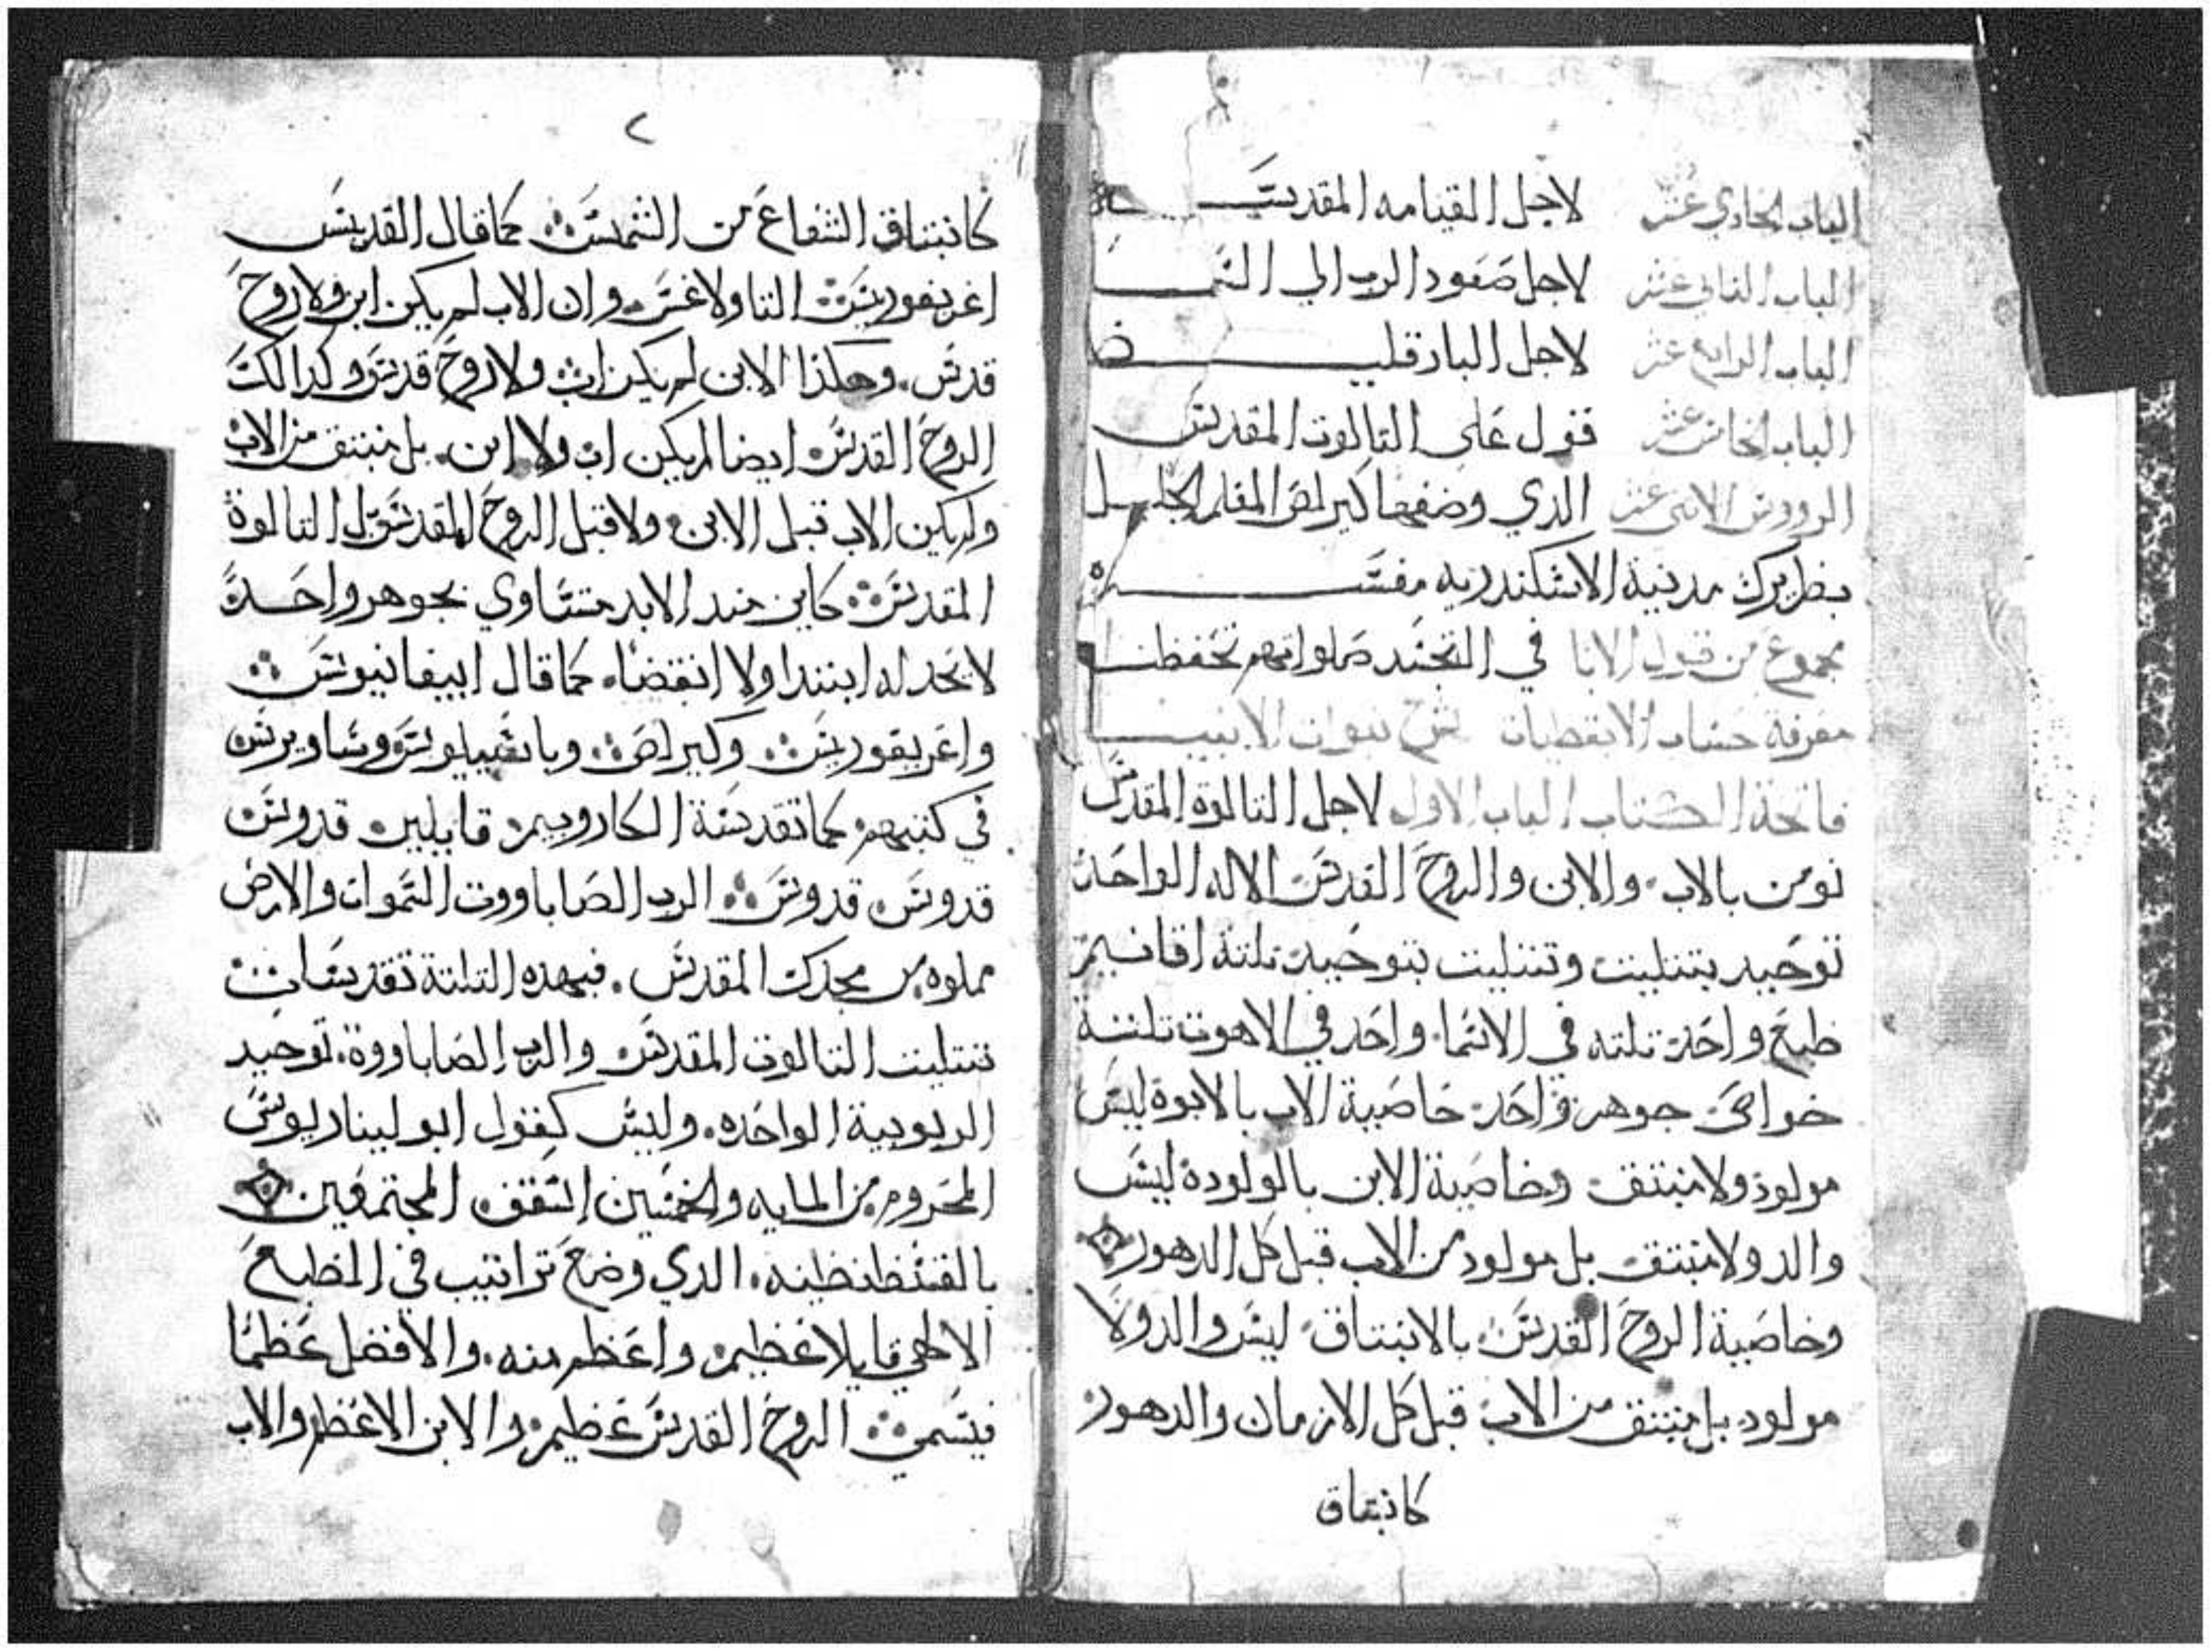 الباب الحادي عشر لاجل القيامه المقدسة
الباب الثاني عشر لاجل صعود الرب الي السما
الباب الرابع عشر لاجل البارقليط
الباب الخامس عشر قول علي التالوت المقدس
الرووس الاتنى عشر الدي وضعها كيرلص المعلم الجليل
بطريرك مدينة الاسكندريه مفسره
مجموع من قول الابا في التجسد صلواتهم تحفظنا
معرفة حساب الابقطيات شرح نبوات الانبيا
فاتحة الكتاب الباب الاول لاجل التالوة المقدس
نومن بالاب والابن والروح القدس الاله الواحد
توحيد بتتليت وتتليت بتوحيد تلتة اقانيم
طبع واحد تلته في الاسما واحد في الاهوت تلتة
خواص جوهر واحد خاصية الاب بالابوة ليس
مولود ولا منبتق وخاصية الابن بالولودة ليس
والد ولا منبتق بل مولود من الاب قبل كل الدهور
وخاصية الروح القدس بالانبتاق ليس والد ولا
مولود بل منبتق من الاب قبل كل الازمان والدهور
كانبتاق
٢
كانبتاق الشعاع من الشمس كما قال القديس
اغريغوريس التاولاغس وان الاب لم يكن ابن ولا روح
قدس وهكذا الابن لم يكن اب ولا روح قدس وكدالك
الروح القدس ايضا لم يكن اب ولا ابن بل منبتق من الاب
ولم يكن الاب قبل الابن ولا قبل الروح المقدس بل التالوة
المقدس كاين مند الابد متساوي بجوهر واحد
لا يحد له ابتدا ولا انقضا كما قال ابيفانيوس
واغريقوريس وكيرلص وباسيليوس وساويرس
في كتبهم كما تقدسة الكاروبيم قايلين قدوس
قدوس قدوس الرب الصاباووت السموات والارض
مملوه من مجدك المقدس فبهده التلتة تقديسات
تتليت التالوت المقدس والرب الصاباووة توحيد
الربوبية الواحده وليس كقول ابوليناريوس
المحروم من المايه والخمسين اسقف المجتمعين
بالقسطنطينه الدي وضع تراتيب في الطبع
الالاهي قايلا عظيم واعظم منه والافضل عظما
فيسمي الروح القدس عظيم والابن الاعظم والاب